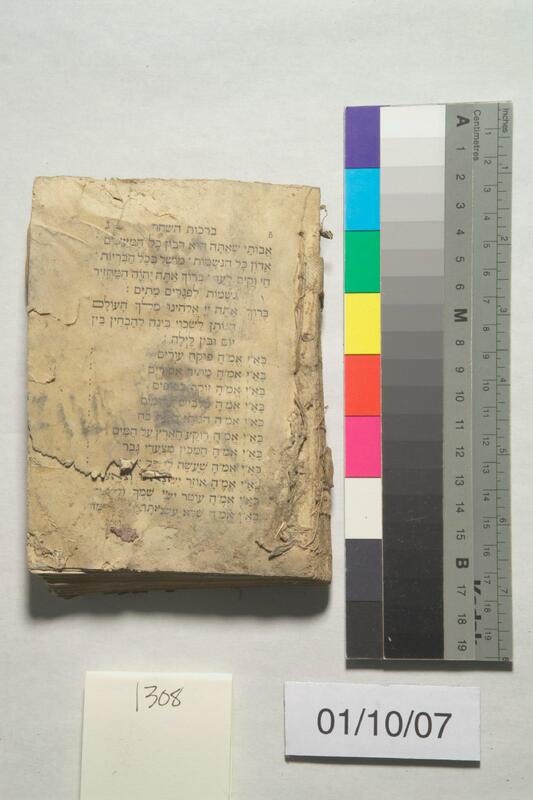 ברכות השחר
אבותי שאתה הוא רבון כל המעשים
אדון כל הנשמות מושל בכל הבריות
חי וקים לעד ברוך אתה יהוה המחזיר
נשמות לפגרים מתים :
ברוך אתה יי אלהינו מלך העולם
הנותן לשכוי בינה להבחין בין
יום ובין לילה :
בא״י אמ״ה פוקח עורים
בא״י אמ״ה מתיר אסורים
בא״י אמ״ה זוקף כפופים
בא״י אמ״ה מלביש ערומים
בא״י אמ״ה הנותן כח
בא״י אמ״ה רוקע הארץ על המים
בא״י אמ״ה המכין מצעדי גבר
בא״י אמ״ה שעשה לי כל
בא״י אמ״ה אוזר
בא״י אמ״ה עוטר יש׳ שמך
בא״י אמ״ה שלא עשיתה
inches
Centimetres
A 1 2 3 4 5 6 M 8 9 10 11 12 13 14 15 B 17 18 19
1 2 3 4 5 6 7 8 9 10 11 12 13 14 15 16 17 18 19
1 2 3 4 5 6 7 8
1308
01/10/07